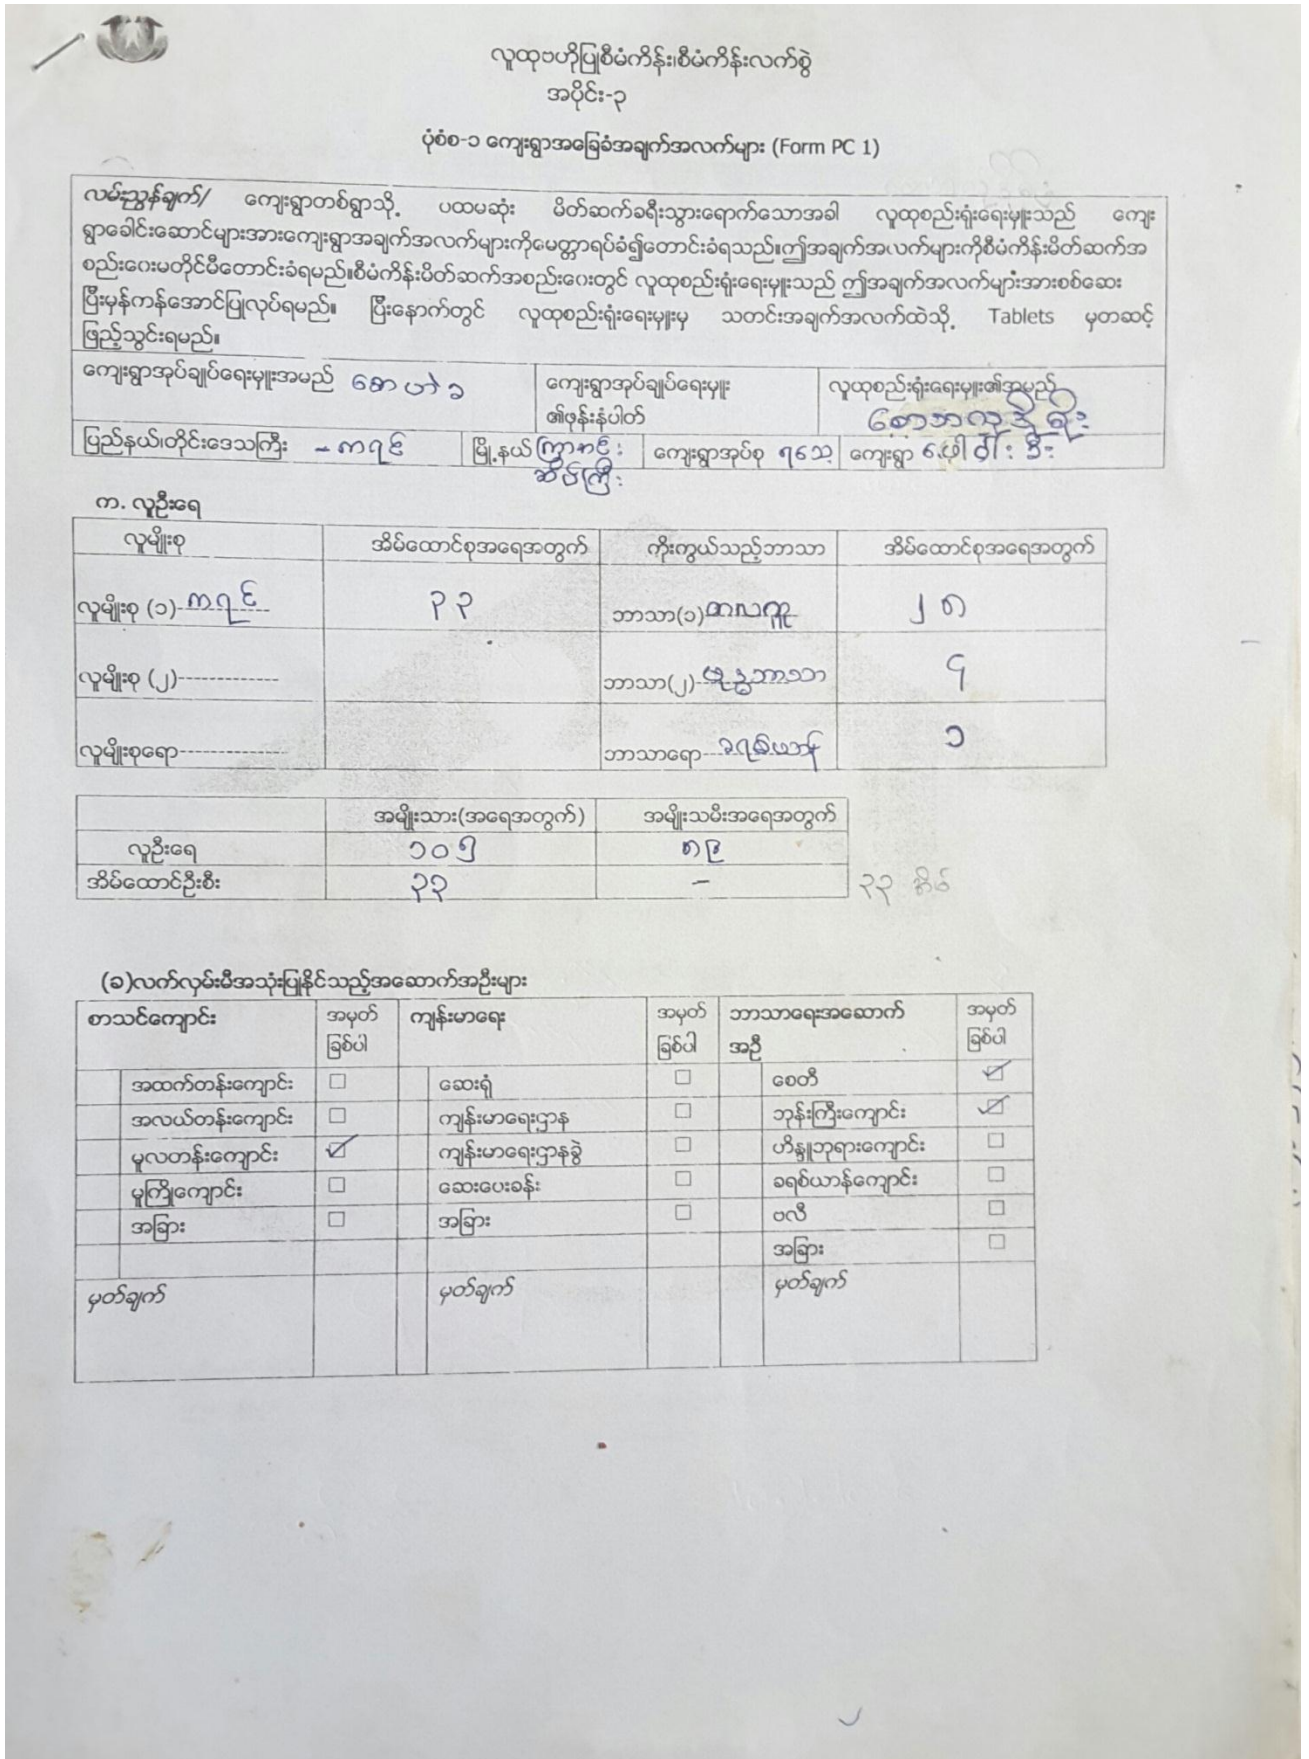 လူထုဗဟိုပြုစီမံကိန်း၊စီမံကိန်းလက်စွဲ
အပိုင်း-၃
ပုံစံစ-၁ ကျေးရွာအခြေခံအချက်အလက်များ (Form PC 1)
လမ်းညွှန်ချက်/ ကျေးရွာတစ်ရွာသို့ ပထမဆုံး မိတ်ဆက်ခရီးသွားရောက်သောအခါ လူထုစည်းရုံးရေးမှူးသည် ကျေး
ရွာခေါင်းဆောင်များအားကျေးရွာအချက်အလက်များကိုမေတ္တာရပ်ခံ၍တောင်းခံရသည်။ဤအချက်အလက်များကိုစီမံကိန်းမိတ်ဆက်အ
စည်းဝေးမတိုင်မီတောင်းခံရမည်။စီမံကိန်းမိတ်ဆက်အစည်းဝေးတွင် လူထုစည်းရုံးရေးမှူးသည် ဤအချက်အလက်များအားစစ်ဆေး
ပြီးမှန်ကန်အောင်ပြုလုပ်ရမည်။ ပြီးနောက်တွင် လူထုစည်းရုံးရေးမှူးမှ သတင်းအချက်အလက်ထဲသို့ Tablets မှတဆင့်
ဖြည့်သွင်းရမည်။
ကျေးရွာအုပ်ချုပ်ရေးမှူးအမည် စောဟဲခ ကျေးရွာအုပ်ချုပ်ရေးမှူး လူထုစည်းရုံးရေးမှူး၏အမည်
၏ဖုန်းနံပါတ်
ပြည်နယ်၊တိုင်းဒေသကြီး - ကရင် မြို့နယ် ကြာအင်း ကျေးရွာအုပ်စု ရသေ့ ကျေးရွာ
ဆိပ်ကြီး
က. လူဦးရေ
လူမျိုးစု အိမ်ထောင်စုအရေအတွက် ကိုးကွယ်သည့်ဘာသာ အိမ်ထောင်စုအရေအတွက်
လူမျိုးစု (၁)-ကရင် ၃၃ ဘာသာ(၁) ၂၈
လူမျိုးစု (၂)------------- ဘာသာ(၂)-ဗုဒ္ဓဘာသာ ၄
လူမျိုးစုရော--------------- ဘာသာရော--ခရစ်ယာန် ၁
အမျိုးသား(အရေအတွက်) အမျိုးသမီးအရေအတွက်
လူဦးရေ ၁၀၅ ၈၉
အိမ်ထောင်ဦးစီး ၃၃ - ၃၃ အိမ်
(ခ)လက်လှမ်းမီအသုံးပြုနိုင်သည့်အဆောက်အဦးများ
စာသင်ကျောင်း အမှတ် ကျန်းမာရေး အမှတ် ဘာသာရေးအဆောက် အမှတ်
ခြစ်ပါ ခြစ်ပါ အဦ ခြစ်ပါ
အထက်တန်းကျောင်း □ ဆေးရုံ □ စေတီ ☑
အလယ်တန်းကျောင်း □ ကျန်းမာရေးဌာန □ ဘုန်းကြီးကျောင်း ☑
မူလတန်းကျောင်း ☑ ကျန်းမာရေးဌာနခွဲ □ ဟိန္ဒူဘုရားကျောင်း □
မူကြိုကျောင်း □ ဆေးပေးခန်း □ ခရစ်ယာန်ကျောင်း □
အခြား □ အခြား □ ဗလီ □
အခြား □
မှတ်ချက် မှတ်ချက် မှတ်ချက်